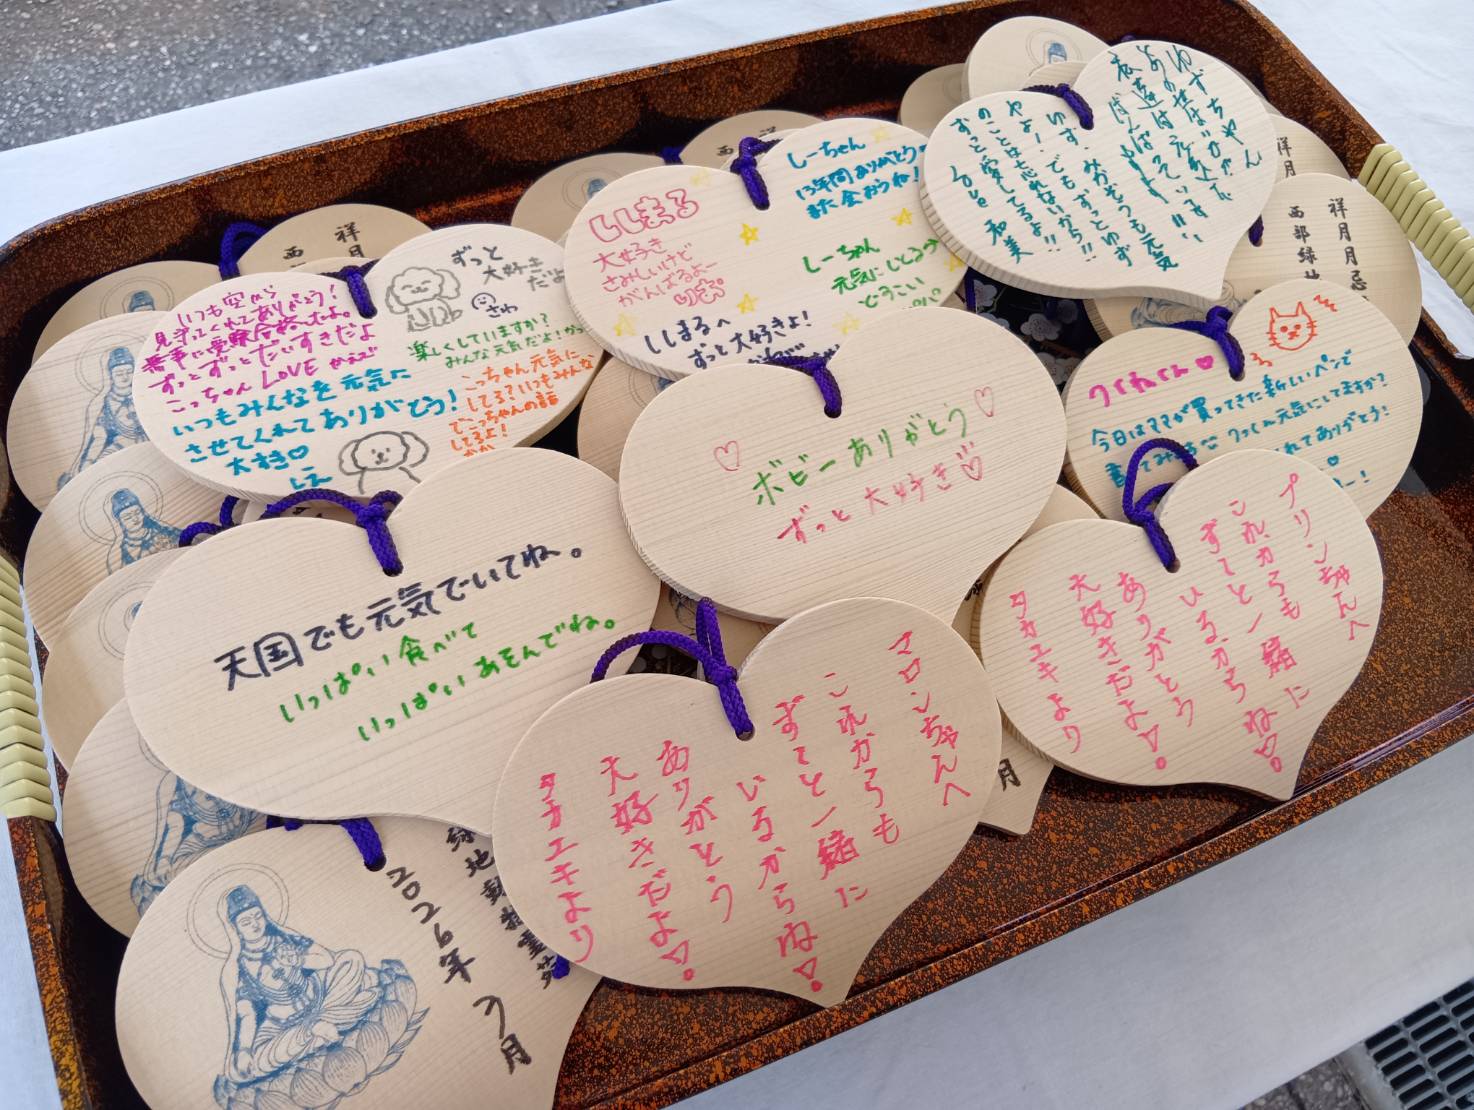 祥月
西
祥月
西
祥月
祥月月忌
西部緑地
いつも空から
見守ってくれてありがとう!
無事に受験合格したよ。
ずっとずっとだいすきだよ
こっちゃん LOVE かえで
いつもみんなを元気に
させてくれてありがとう!
大好き♡
ずっと
大好き
だよ
さわ
楽しくしていますか?
みんな元気だよ!
こっちゃん元気に
してる?いつもみんな
でこっちゃんの話
してるよ!
ししまる
大好き
さみしいけど
がんばるよー
しーちゃん
13年間ありがとう
また会おうね!
しーちゃん
元気にしとるう
ししまるへ
ずっと大好きよ!
ゆずちゃん
ゆず、みんなそっちも元気
やよ!でもずっとゆず
のことは忘れないから!!
ずっと愛してるよ!!
和美
今日はママが買ってきた新しいペンで
元気にしてますか?
くれてありがとう!
♡ ボビーありがとう ♡
ずっと大好き♡
天国でも元気でいてね。
いっぱい食べて
いっぱいあそんでね。
プリンちゃんへ
これからも
ずっと一緒に
いるからね♡。
ありがとう
大好きだよ♡。
タカユキより
マロンちゃんへ
これからも
ずっと一緒に
いるからね♡。
ありがとう
大好きだよ♡。
タカユキより
月
緑地動物霊苑
2026年